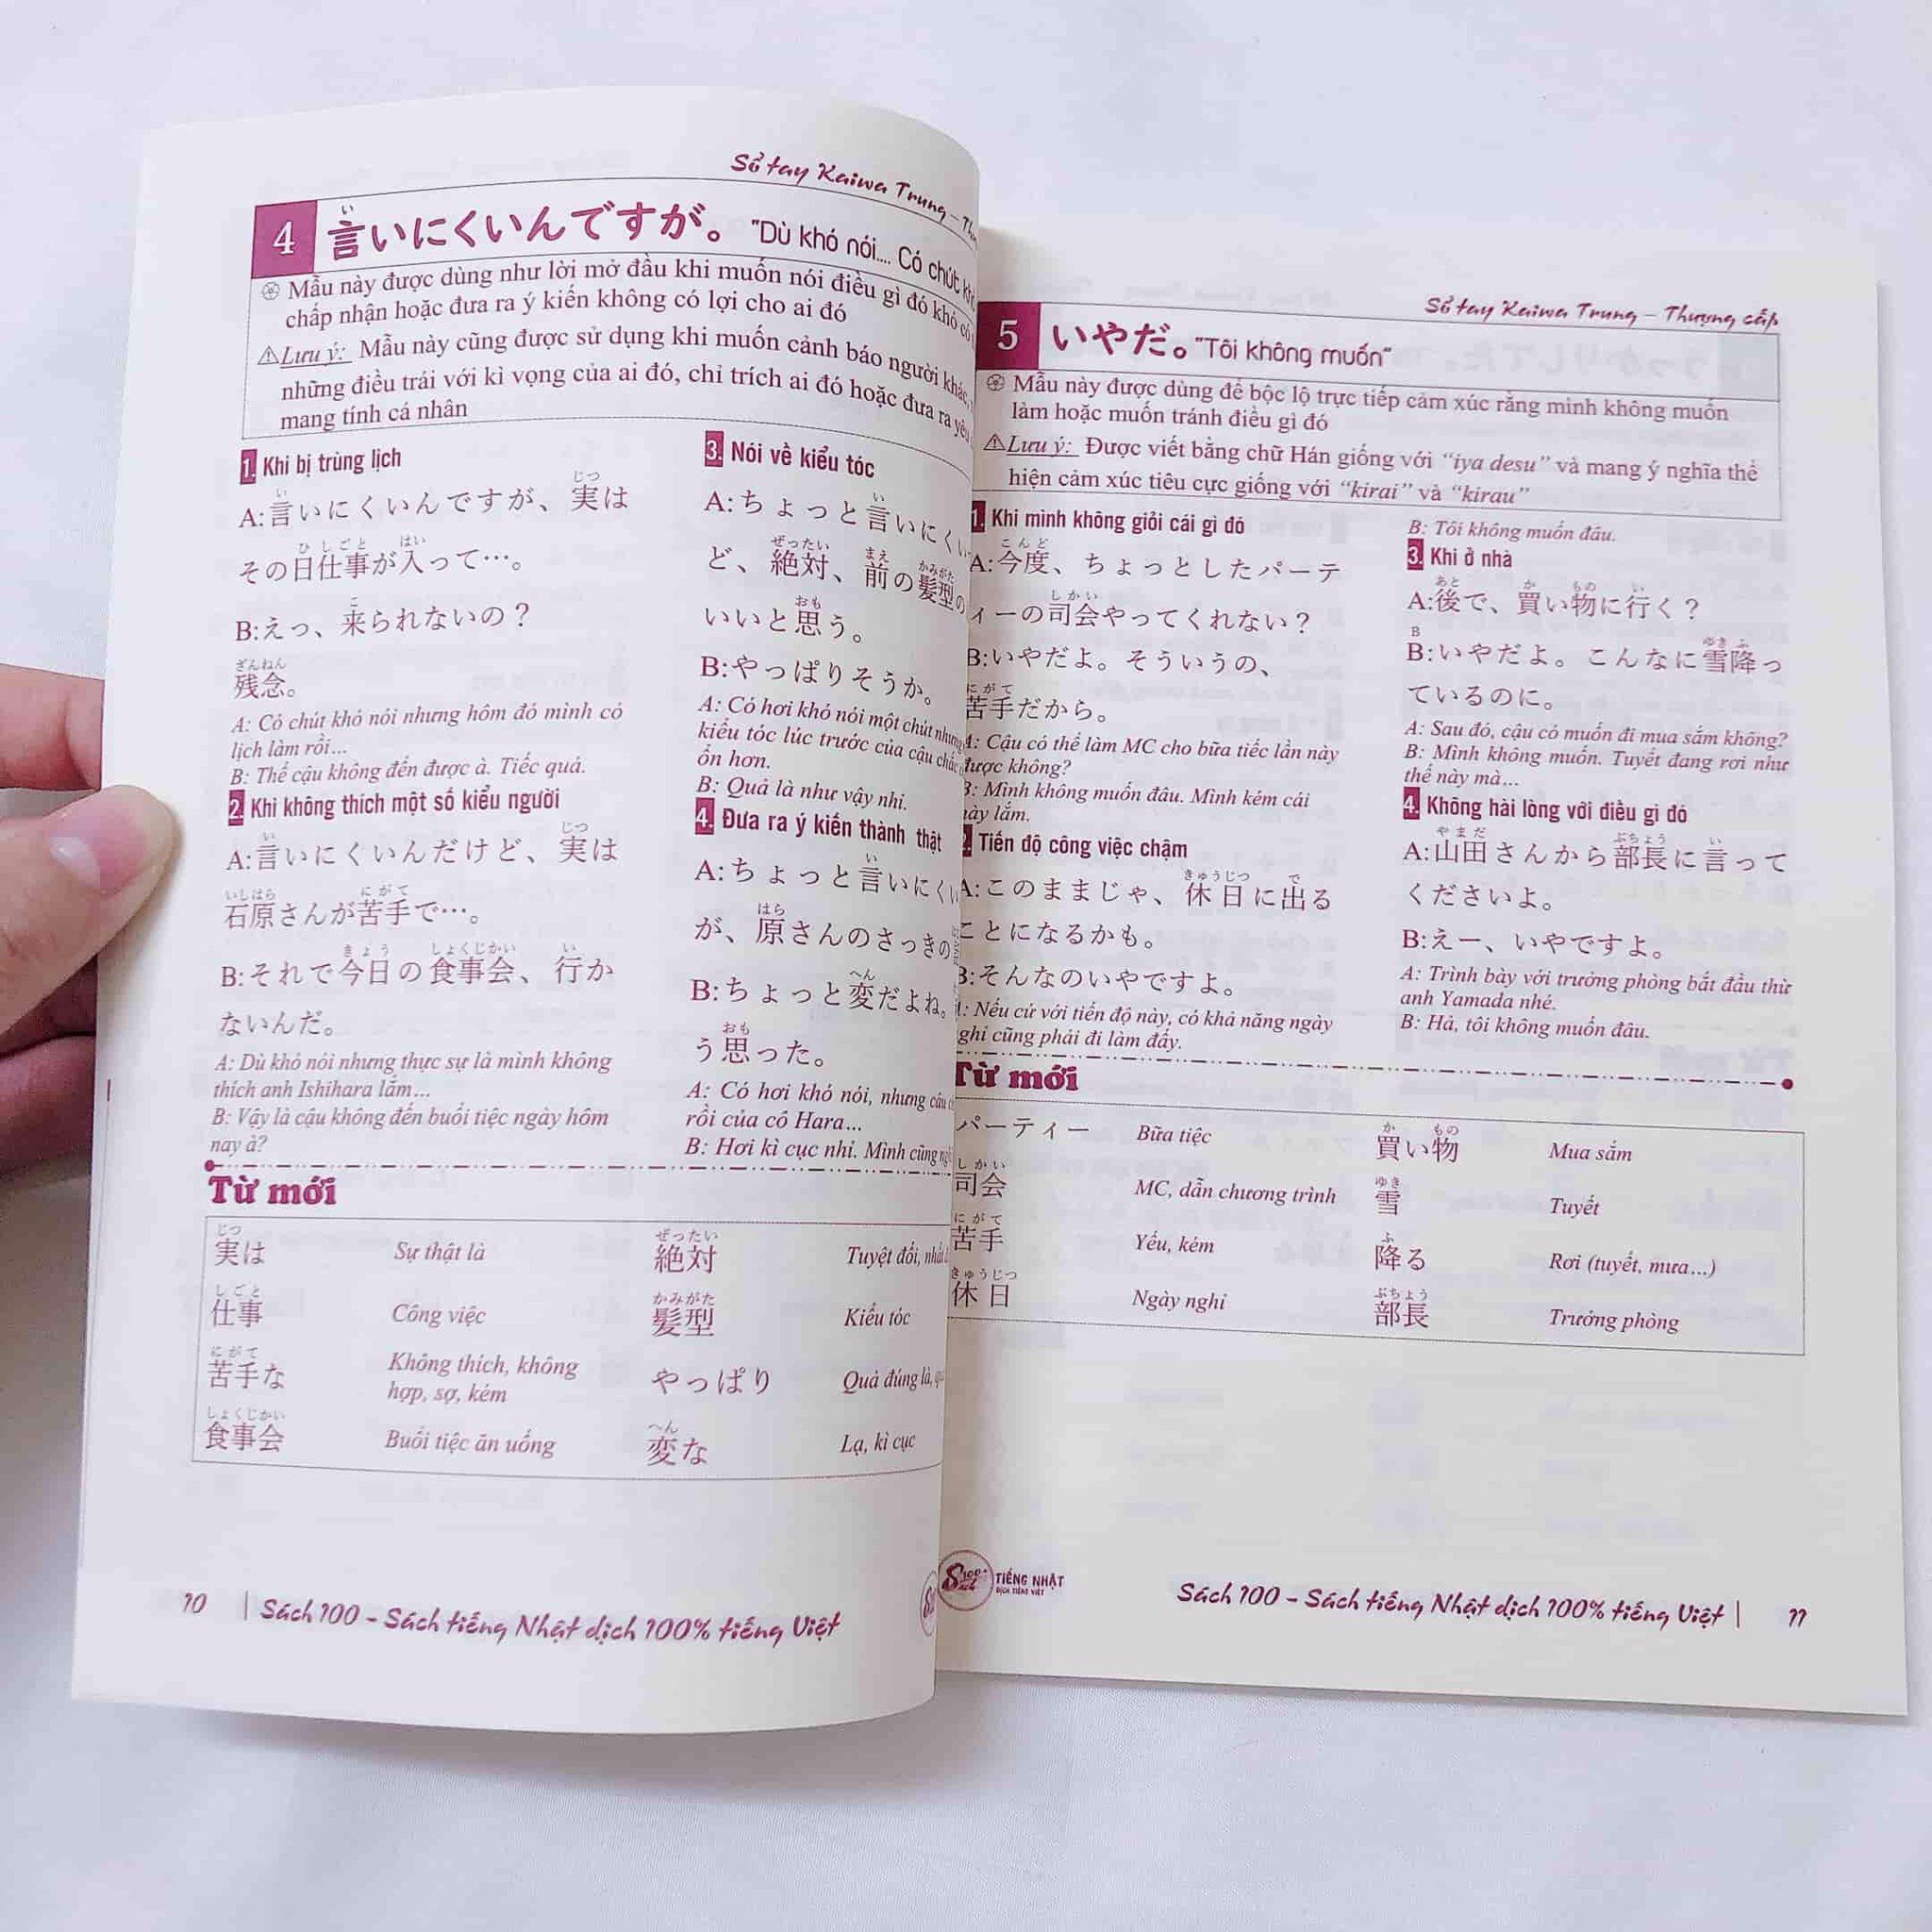 Sổ tay Kaiwa Trung –
4 言いにくいんですが。 "Dù khó nói.... Có chút
Mẫu này được dùng như lời mở đầu khi muốn nói điều gì đó khó có
chấp nhận hoặc đưa ra ý kiến không có lợi cho ai đó
Lưu ý: Mẫu này cũng được sử dụng khi muốn cảnh báo người khác,
những điều trái với kì vọng của ai đó, chỉ trích ai đó hoặc đưa ra yêu
mang tính cá nhân
1. Khi bị trùng lịch
A:言いにくいんですが、実は
その日仕事が入って…。
B:えっ、来られないの？
残念。
A: Có chút khó nói nhưng hôm đó mình có
lịch làm rồi...
B: Thế cậu không đến được à. Tiếc quá.
2. Khi không thích một số kiểu người
A:言いにくいんだけど、実は
石原さんが苦手で…。
B:それで今日の食事会、行か
ないんだ。
A: Dù khó nói nhưng thực sự là mình không
thích anh Ishihara lắm...
B: Vậy là cậu không đến buổi tiệc ngày hôm
nay à?
3. Nói về kiểu tóc
A:ちょっと言いにくい
ど、絶対、前の髪型の
いいと思う。
B:やっぱりそうか。
A: Có hơi khó nói một chút nhưng
kiểu tóc lúc trước của cậu chắc
ổn hơn.
B: Quả là như vậy nhỉ.
4. Đưa ra ý kiến thành thật
A:ちょっと言いにくい
が、原さんのさっきの
B:ちょっと変だよね。
う思った。
A: Có hơi khó nói, nhưng câu
rồi của cô Hara...
B: Hơi kì cục nhỉ. Mình cũng
Từ mới
実は Sự thật là 絶対 Tuyệt đối,
仕事 Công việc 髪型 Kiểu tóc
苦手な Không thích, không
hợp, sợ, kém やっぱり Quả đúng là,
食事会 Buổi tiệc ăn uống 変な Lạ, kì cục
10 | Sách 100 – Sách tiếng Nhật dịch 100% tiếng Việt
Sổ tay Kaiwa Trung – Thượng cấp
5 いやだ。"Tôi không muốn"
Mẫu này được dùng để bộc lộ trực tiếp cảm xúc rằng mình không muốn
làm hoặc muốn tránh điều gì đó
Lưu ý: Được viết bằng chữ Hán giống với “iya desu” và mang ý nghĩa thể
hiện cảm xúc tiêu cực giống với “kirai” và “kirau”
1. Khi mình không giỏi cái gì đó
A:今度、ちょっとしたパーテ
ィーの司会やってくれない？
B:いやだよ。そういうの、
苦手だから。
A: Cậu có thể làm MC cho bữa tiệc lần này
được không?
B: Mình không muốn đâu. Mình kém cái
này lắm.
Tiến độ công việc chậm
A:このままじゃ、休日に出る
ことになるかも。
B:そんなのいやですよ。
A: Nếu cứ với tiến độ này, có khả năng ngày
nghỉ cũng phải đi làm đấy.
B: Tôi không muốn đâu.
3. Khi ở nhà
A:後で、買い物に行く？
B:いやだよ。こんなに雪降っ
ているのに。
A: Sau đó, cậu có muốn đi mua sắm không?
B: Mình không muốn. Tuyết đang rơi như
thế này mà...
4. Không hài lòng với điều gì đó
A:山田さんから部長に言って
くださいよ。
B:えー、いやですよ。
A: Trình bày với trưởng phòng bắt đầu thử
anh Yamada nhé.
B: Hả, tôi không muốn đâu.
Từ mới
パーティー Bữa tiệc 買い物 Mua sắm
司会 MC, dẫn chương trình 雪 Tuyết
苦手 Yếu, kém 降る Rơi (tuyết, mưa...)
休日 Ngày nghỉ 部長 Trưởng phòng
TIẾNG NHẬT
DỊCH TIẾNG VIỆT
Sách 100 – Sách tiếng Nhật dịch 100% tiếng Việt | 11